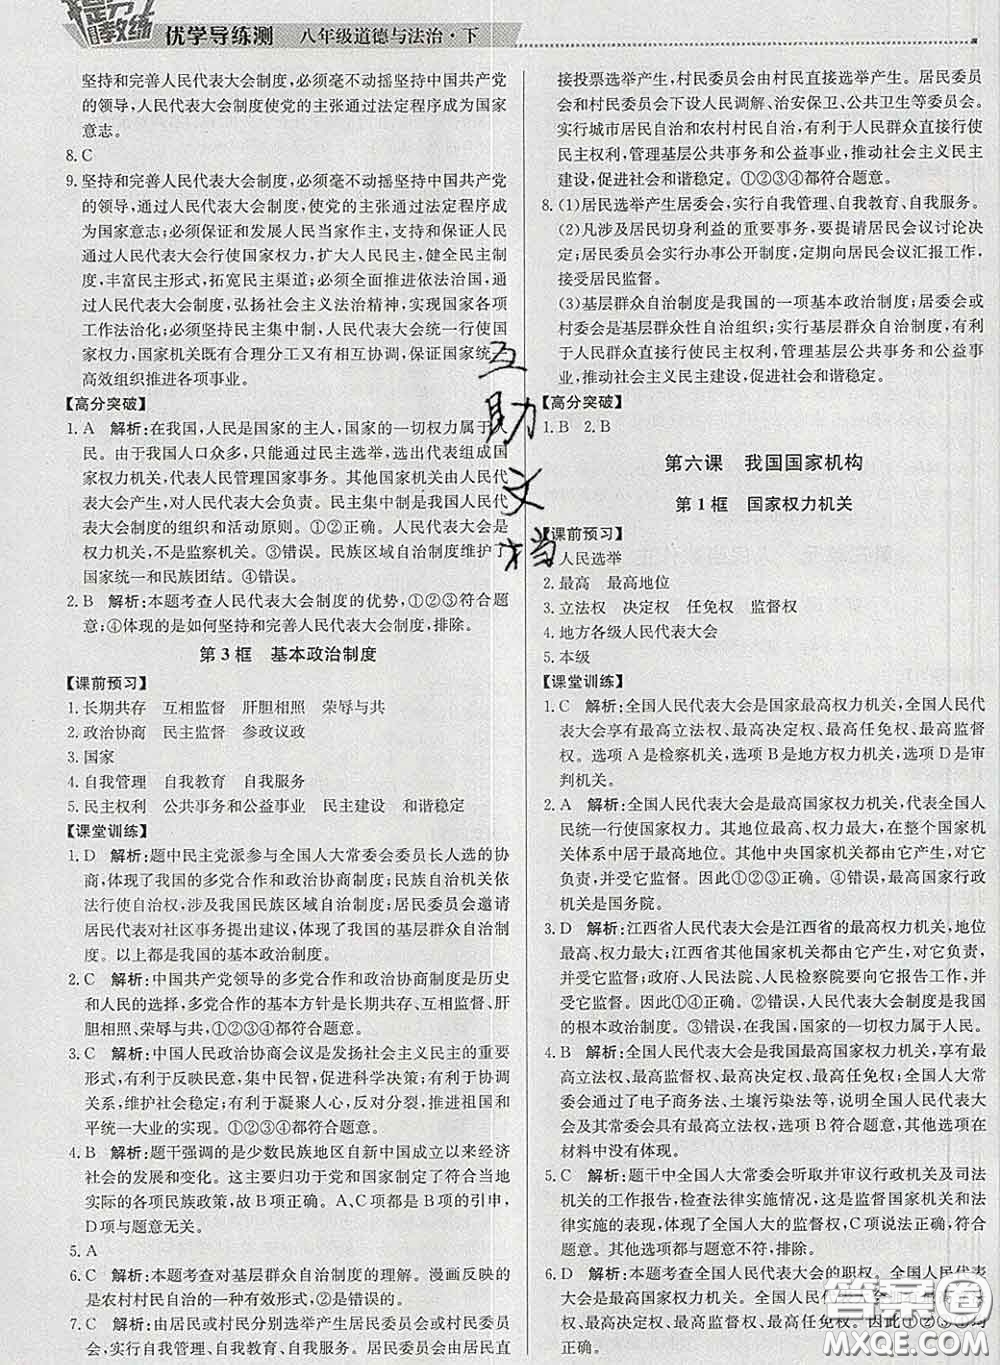 提分教练 优学导练测 八年级道德与法治·下
坚持和完善人民代表大会制度,必须毫不动摇坚持中国共产党
的领导,人民代表大会制度使党的主张通过法定程序成为国家
意志。
8. C
9. 坚持和完善人民代表大会制度,必须毫不动摇坚持中国共产党
的领导,通过人民代表大会制度,使党的主张通过法定程序成
为国家意志;必须保证和发展人民当家作主,支持和保证人民
通过人民代表大会行使国家权力,扩大人民民主,健全民主制
度,丰富民主形式,拓宽民主渠道;必须全面推进依法治国,通
过人民代表大会制度,弘扬社会主义法治精神,实现国家各项
工作法治化;必须坚持民主集中制,人民代表大会统一行使国
家权力,国家机关既有合理分工又有相互协调,保证国家统一
高效组织推进各项事业。
【高分突破】
1. A 解析:在我国,人民是国家的主人,国家的一切权力属于人
民。由于我国人口众多,只能通过民主选举,选出代表组成各
级国家权力机关,代表人民管理国家事务。其他国家机关由人
民代表大会产生,对人民代表大会负责。民主集中制是我国人民
代表大会制度的组织和活动原则。①②正确。人民代表大会是
权力机关,不是监察机关。③错误。民族区域自治制度维护了
国家统一和民族团结。④错误。
2. B 解析:本题考查人民代表大会制度的优势,①②③符合题
意;④体现的是如何坚持和完善人民代表大会制度,排除。
第3框 基本政治制度
【课前预习】
1. 长期共存 互相监督 肝胆相照 荣辱与共
2. 政治协商 民主监督 参政议政
3. 国家
4. 自我管理 自我教育 自我服务
5. 民主权利 公共事务和公益事业 民主建设 和谐稳定
【课堂训练】
1. D 解析:题中民主党派参与全国人大常委会委员长人选的协
商,体现了我国的多党合作和政治协商制度;民族自治机关依
法行使自治权,涉及我国民族区域自治制度;居民委员会邀请
居民代表对社区事务提出建议,体现了我国的基层群众自治制
度。以上都是我国的基本政治制度。
2. C 解析:中国共产党领导的多党合作和政治协商制度是历史
和人民的选择,多党合作的基本方针是长期共存、互相监督、肝
胆相照、荣辱与共,①②③④都符合题意。
3. C 解析:中国人民政治协商会议是发扬社会主义民主的重要
形式,有利于反映民意,集中民智,促进科学决策;有利于协调
关系,维护社会和谐稳定;有利于凝聚人心,反对分裂,推进祖国和
平统一大业的实现。①②③④都符合题意。
4. B 解析:题干强调的是少数民族地区自新中国成立以来经济
社会的发展和变化。这主要归功于党和国家制定了适合民族地区
实际的各项民族政策,故B项正确。A、C项都是B项的引申,
D项与题意无关。
5. A
6. C 解析:本题考查对基层群众自治制度的理解。漫画反映的
是农村村民自治的一种有效形式,②是错误的。
7. C 解析:由居民或村民分别选举产生居民委员会或村民委员会,
实行自我管理、自我教育、自我服务。居民委员会由居民直
接投票选举产生,村民委员会由村民直接选举产生。居民委员
会和村民委员会下设人民调解、治安保卫、公共卫生等委员会。
实行城市居民自治和农村村民自治,有利于人民群众直接行使
民主权利,管理基层公共事务和公益事业,推动社会主义民主
建设,促进社会和谐稳定。①②③④都符合题意。
8. (1)居民选举产生居委会,实行自我管理、自我教育、自我服务。
(2)凡涉及居民切身利益的重要事务,要提请居民会议讨论决
定;居民委员会实行办事公开制度,定期向居民会议汇报工作,
接受居民监督。
(3)基层群众自治制度是我国的一项基本政治制度;居委会或
村委会是基层群众性自治组织;实行基层群众自治制度,有利
于人民行使民主权利,管理基层公共事务和公益事业,推进社
会主义民主建设,促进社会和谐稳定。
【高分突破】
1. B 2. B
第六课 我国国家机构
第1框 国家权力机关
【课前预习】
1. 人民选举
2. 最高 最高地位
3. 立法权 决定权 任免权 监督权
4. 地方各级人民代表大会
5. 本级
【课堂训练】
1. C 解析:全国人民代表大会是国家最高权力机关,全国人民代
表大会享有最高立法权、最高决定权、最高任免权、最高监督
权。选项A是检察机关,选项B是地方权力机关,选项D是审
判机关。
2. A 解析:全国人民代表大会是最高国家权力机关,代表全国人
民统一行使国家权力。其地位最高、权力最大,在整个国家
机关体系中居于主导地位。其他中央国家机关都由它产生,对它
负责,并受它监督。因此①②③正确。④错误,最高国家行政
机关是国务院。
3. D 解析:江西省人民代表大会是江西省的最高权力机关,地位
最高、权力最大;江西省其他国家机关都由它产生,对它负责,
并受它监督;政府、人民法院、人民检察院要向它报告工作,并
接受它的监督。因此①④正确。②错误,人民代表大会制度是我国
的根本政治制度。③错误,我国,国家的一切权力属于人民。
4. B 解析:全国人民代表大会是我国最高国家权力机关,享有最
高立法权、最高决定权、最高任免权、最高监督权。全国人民代
表大会通过了电子商务法、土壤污染法等,说明全国人民代表大
会及其常委会具有最高立法权,选项B正确。其他选项在
材料中没有体现。
5. C 解析:题干中全国人大常委会听取并审议行政机关及司法
机关的工作报告,检查法律实施情况,这是监督国家机关和法
律实施的表现,体现了全国人大的监督权,C项说法正确,符合
题意。其他选项都与题意不符,排除。
6. D 解析:本题考查全国人民代表大会的职权。全国人民代表
互助文档
答案圈
MXQE.COM